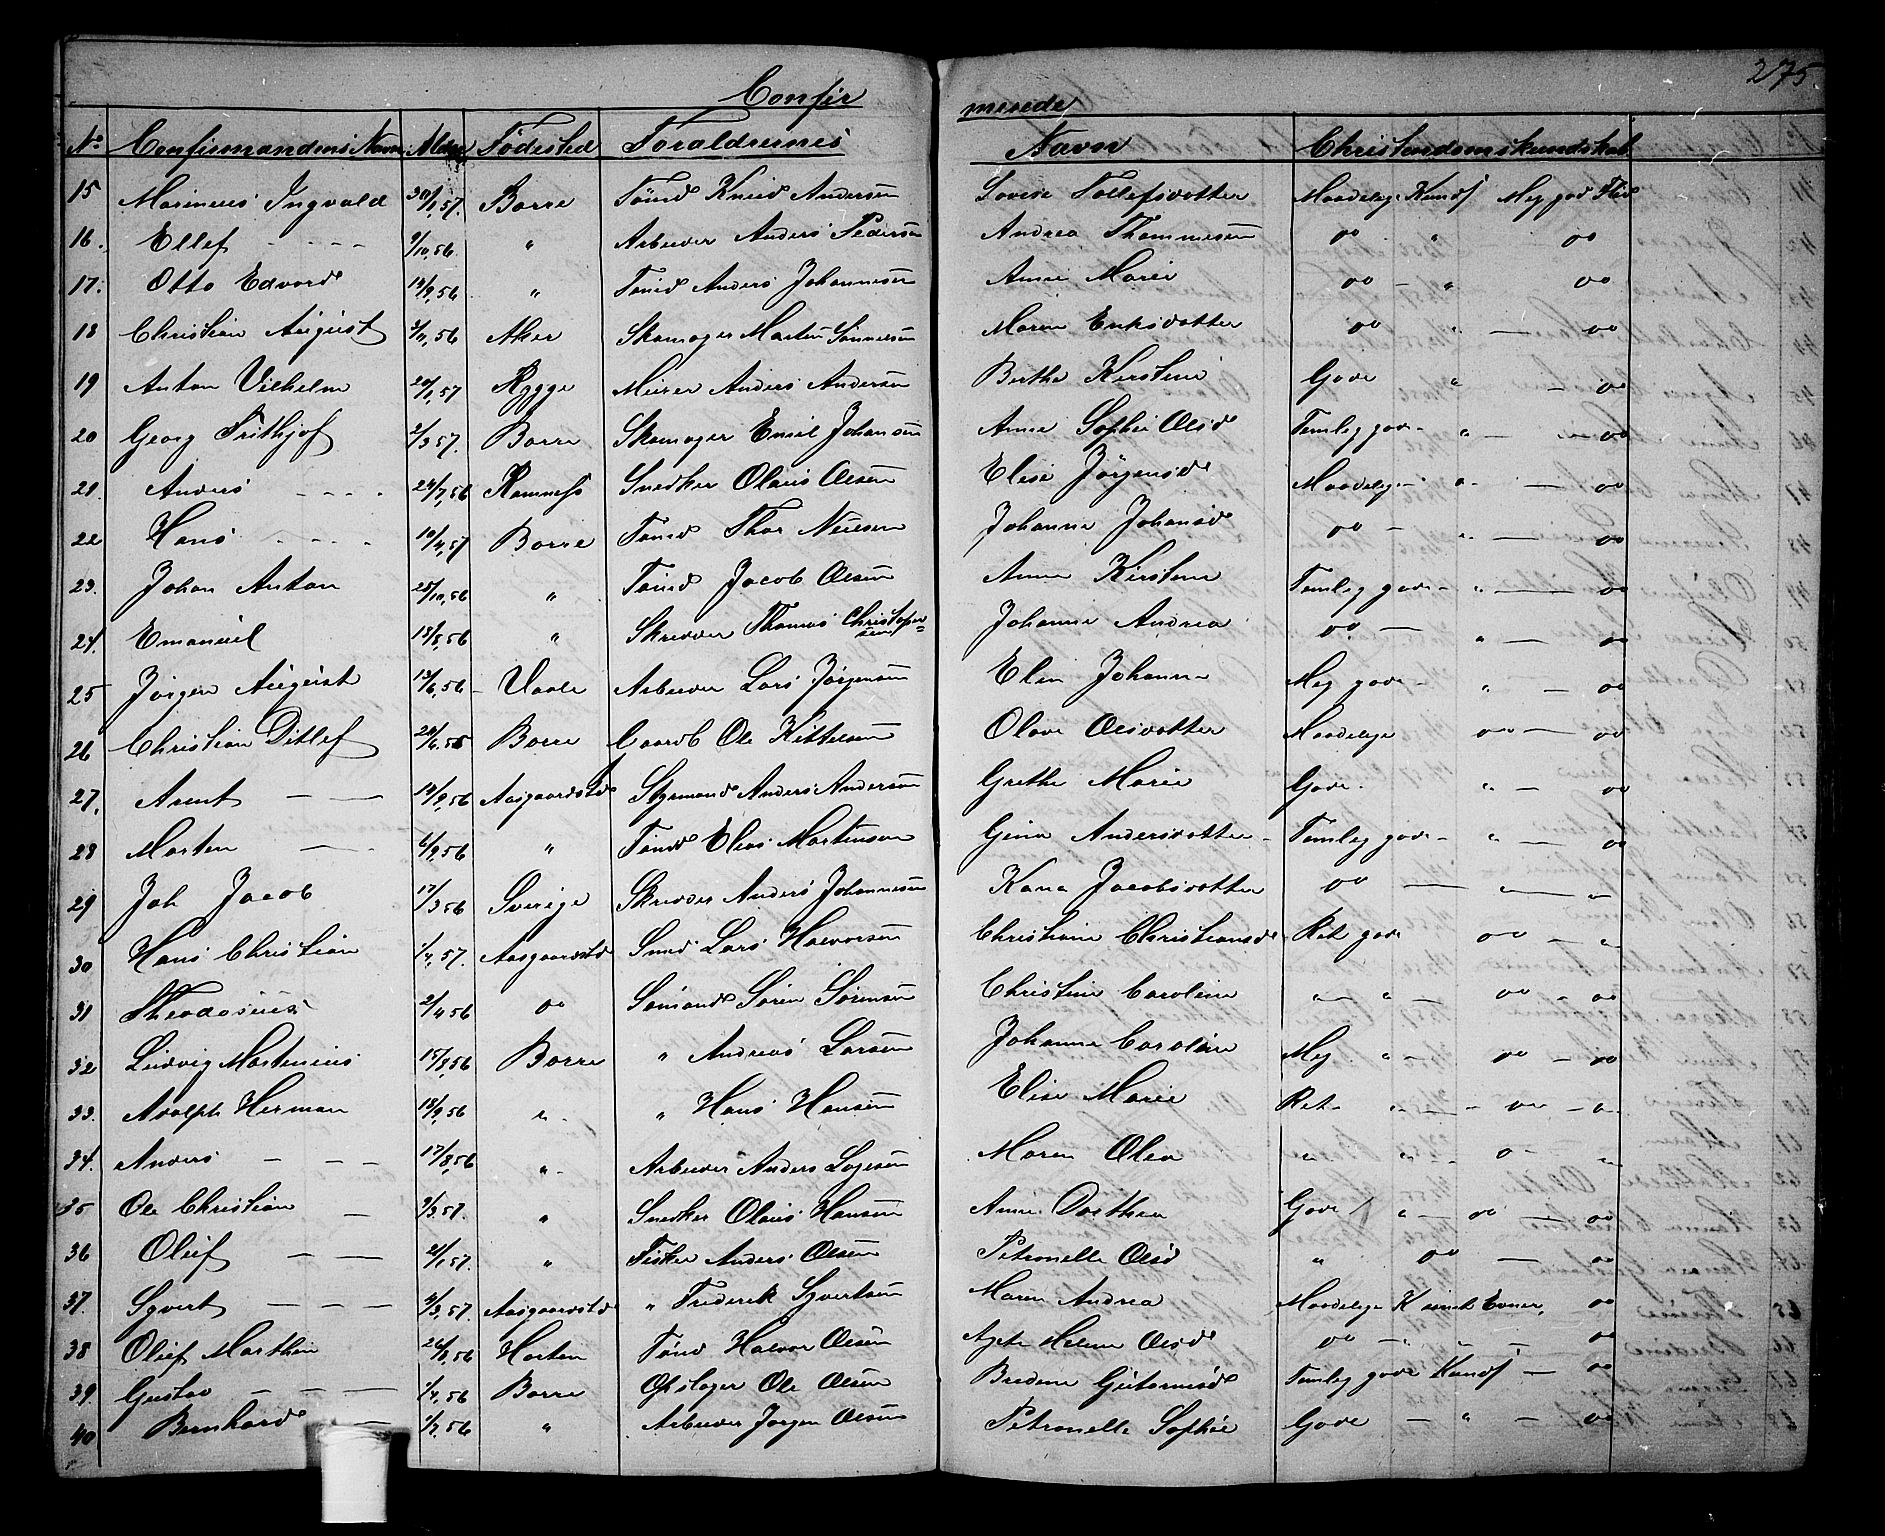 275
Confir merede
No Confirmandens Navn Alder Födested Foraldrernes Navne Christendomskundskab
15 Marinius Ingvald 30/1,57. Borre Tömd Knud Andersen Lovise Tollefsdotter Maadelige Kundsk Meg god Flid
16. Ellef - - - - 9/10,56 " Arbeider Anders Pedersen Andrea Thommesen do " do
17. Otto Edvard 14/9,56 " Tömd Anders Johannesen Anne Marie do - " do
18 Christian August 3/11,56 Aker Skomager Morten Maren Eriksdotter do " - do
19 Anton Vilhelm 20/1,57 Rygge Murer Anders Andersen Berthe Kirstine Gode " - do
20 Georg Frithjof 2/3 57. Borre Skomager Emil Johansen Anne Sophie Olsd Temleg gode - " - do
21. Anders - - - - 24/7,56 Ramness Snedker Olaus Olsen Elise Jörgensd Maadelige - " - do
22 Hans - - - - 10/4,57 Borre Tömd Thor Nielsen Johanne Johansd do - " - do
23. Johan Anton 25/10,56 " Tömd Jacob Olsen Anne Kirstine Temleg gode - " - do
24. Emanuel 13/5,56 " Skredder Thomas Christopersen Johanne Andrea do. - " - do
25 Jörgen August 13/6,56 - Vaale Arbeider Lars Jörgensen Elen Johanne Meg gode - " - do
26 Christian Ditlef 20/6,56 Borre Gaardb Ole Kittelsen Olave Olsdotter Maadelige do - do
27. Arent - - 14/9,56 Aasgaardstd Styrmand Anders Andersen Grethe Marie Gode. " - do
28 Morten - - 6/9,56 " Tömd Elias Mortensen Gina Andersdotter Temleg gode - " - do
29 Joh Jacob 17/3 56 Sverige Skredder Anders Johannesen Kana Jacobsdotter do - " - "
30 Hans Christian 1/4,57. Aasgaardstd Smed Lars Halvorsen Christiane Christiansd Ret gode do - "
31 Theodosius 2/4 56 do Sömand Sören Sörensen Christine Caroline " - " - do - do
32 Ludvig Martinius 15/8,56 Borre " Andreas Larsen Johanne Caroline Meg " - do - do
33. Adolph Herman 18/9,56 " " Hans Hansen Elise Marie Ret - " - - do - "
34. Anders - - - 17/8,56 " Arbeider Anders Maren Olea " " - do - "
35 Ole Christian - 3/3,57. " Snedker Olaus Hansen Anne Dorthea Gode " - do - do
36 Oluf - - 21/1,57. " Fisker Anders Olsen Petronelle Olsd " do - do
37. Syvert - - - 4/3,57. Aasgaardstd " Frederik Syvertsen Maren Andrea Maadelige Evner, do
38 Oluf Marthin 26/8,56 Horten Tömd Halvor Olsen Helene Olsd do - " - do
39. Gustav - - - 1/4,56 Borre Opslager Ole Olsen Bredine Gutormsd Temleg gode Kundsk - do
40 Bernhard - 1/7,56 " Arbeider Jorgen Olsen Petronelle Sophie Gode - " - do